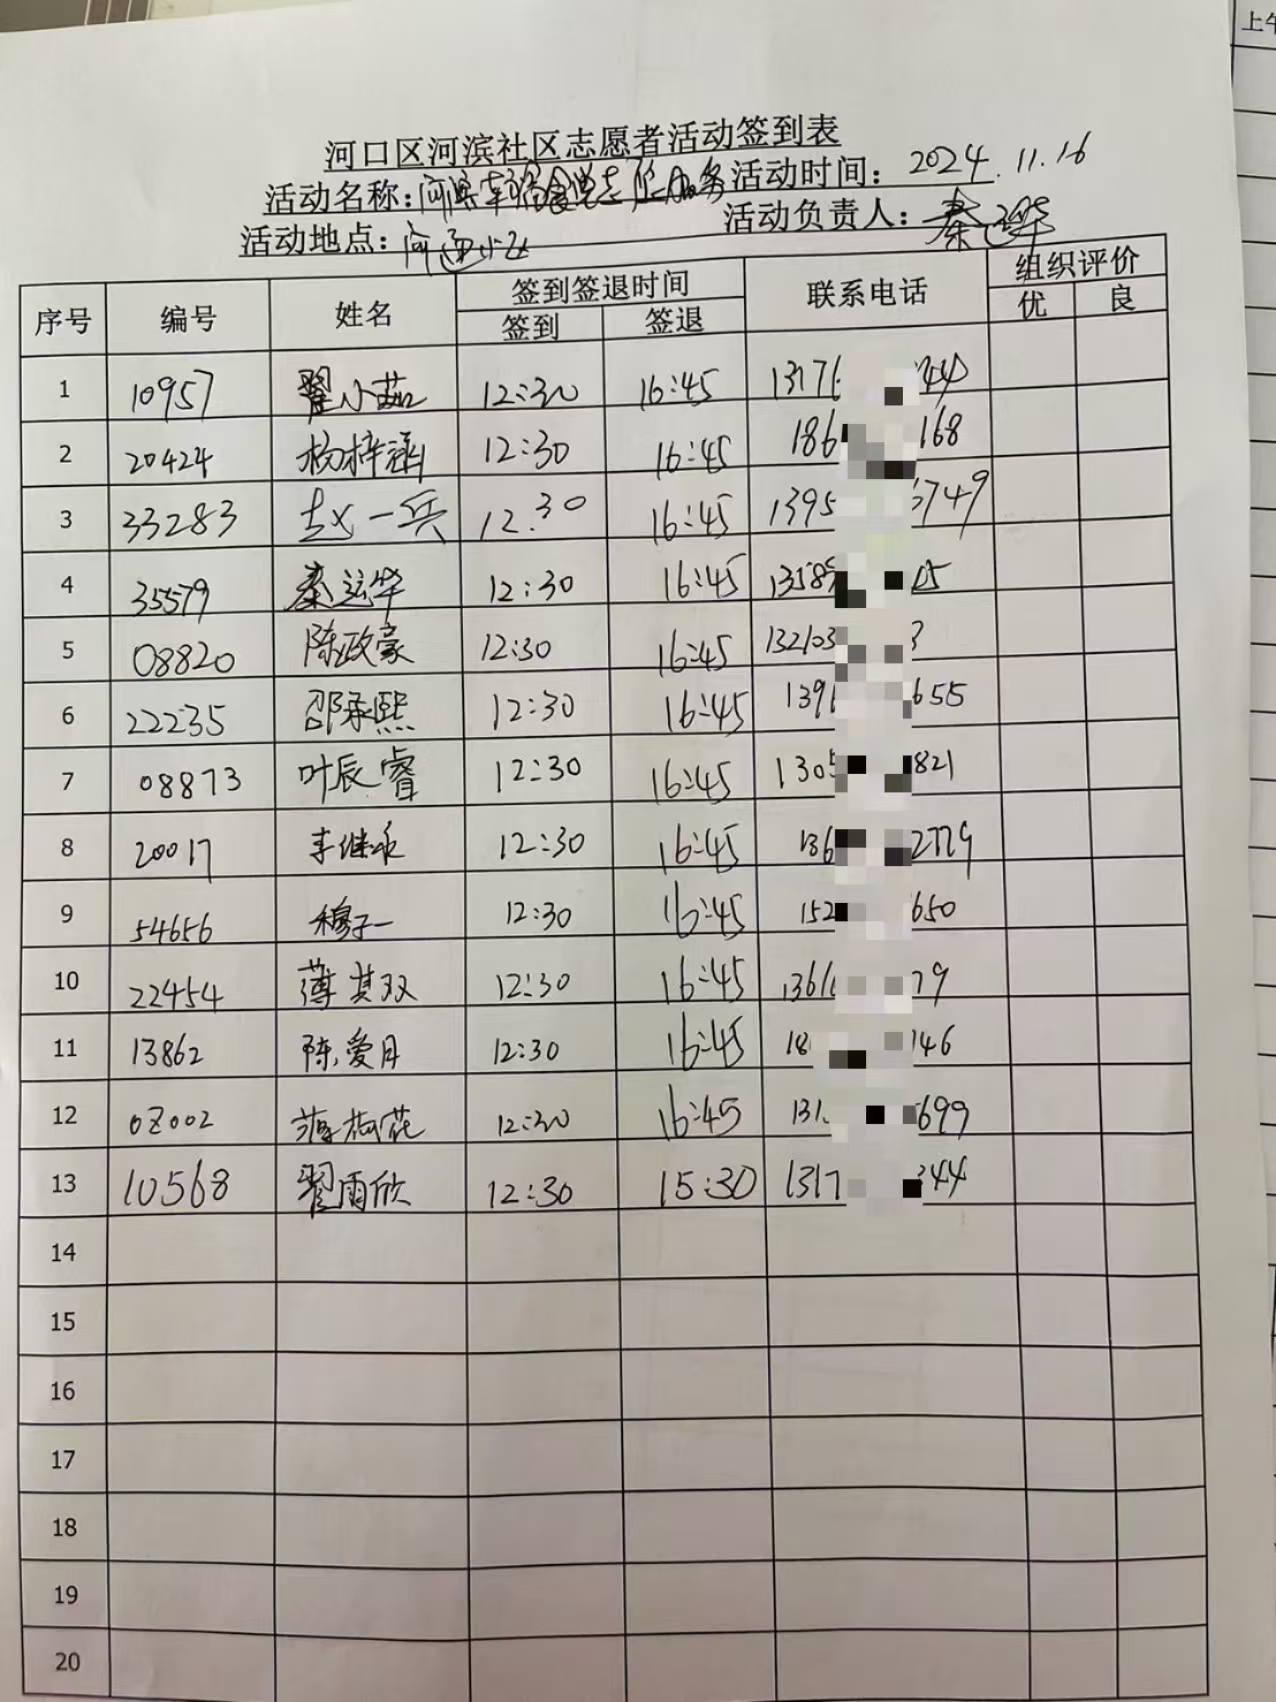 上午
河口区河滨社区志愿者活动签到表
活动名称：河滨幸福食堂志愿服务 活动时间：2024.11.16
活动地点：河滨小区 活动负责人：秦运华
序号 编号 姓名 签到签退时间 联系电话 组织评价
签到 签退 优 良
1 10957 翟小茹 12:30 16:45 1317644
2 20424 杨梓涵 12:30 16:45 186 168
3 33283 赵一兵 12:30 16:45 1395 3749
4 35579 秦运华 12:30 16:45 13585
5 08820 陈政豪 12:30 16:45 132103 3
6 22235 邵承熙 12:30 16:45 1391 655
7 08873 叶辰睿 12:30 16:45 1305 821
8 20017 李继承 12:30 16:45 136 2779
9 54656 穆子一 12:30 16:45 152 650
10 22454 薄其双 12:30 16:45 1361 79
11 13862 陈爱月 12:30 16:45 18 146
12 02002 薄梅花 12:30 16:45 131 699
13 10568 翟雨欣 12:30 15:30 1317 344
14
15
16
17
18
19
20